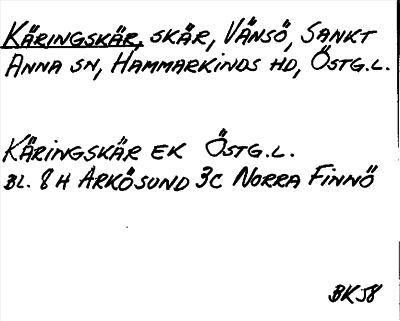 Käringskär, skär, Vänsö, Sankt
Anna sn, Hammarkinds hd, Östg.l.
Käringskär ek Östg.l.
bl. 8H Arkösund 3c Norra Finnö
BK58